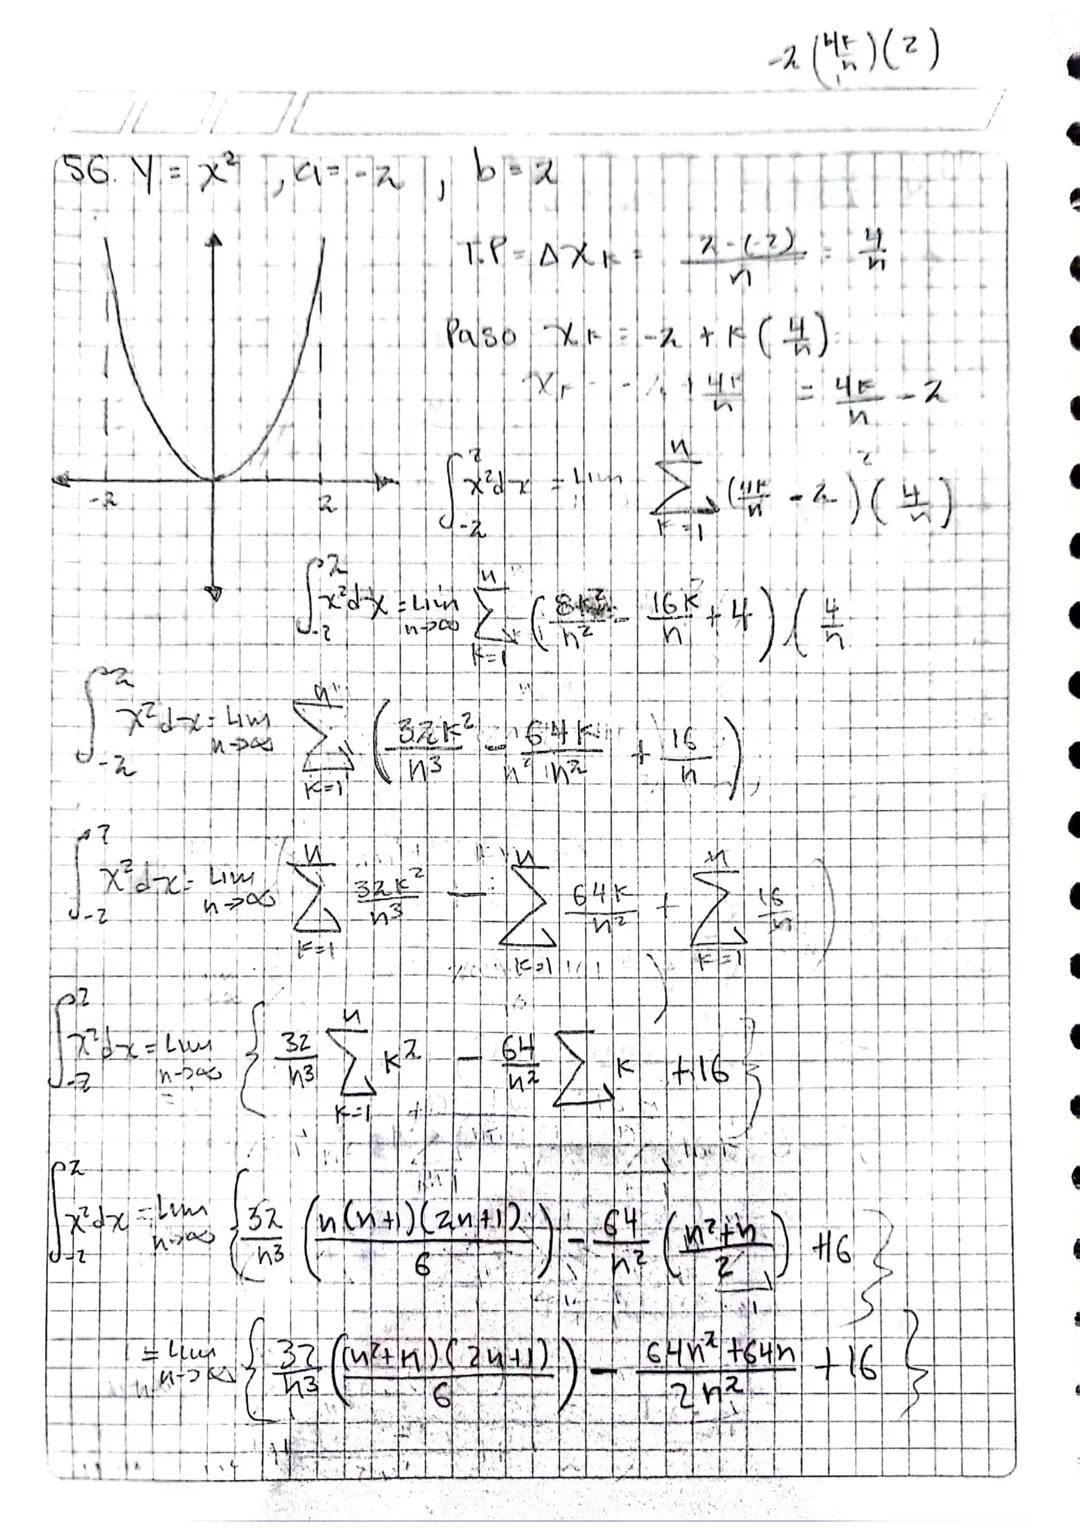 -2(4k/n)(2)
56. y = x² , a = -2 , b = 2
T.P = Δxk = (2-(-2))/n = 4/n
Paso xk = -2 + k(4/n)
xk = -2 + 4k/n = 4k/n - 2
-2 2
∫_{-2}^{2} x²dx = Lim ∑_{k=1}^{n} (4k/n - 2)² (4/n)
∫_{-2}^{2} x²dx = Lim_{n→∞} ∑_{k=1}^{n} (8k²/n² - 16k/n + 4)(4/n
∫_{-2}^{2} x²dx = Lim_{n→∞} ∑_{k=1}^{n} (32k²/n³ - 64k/n² + 16/n)
∫_{-2}^{2} x²dx = Lim_{n→∞} ∑_{k=1}^{n} 32k²/n³ - ∑_{k=1}^{n} 64k/n² + ∑_{k=1}^{n} 16/n )
∫_{-2}^{2} x²dx = Lim_{n→∞} { 32/n³ ∑_{k=1}^{n} k² - 64/n² ∑ k + 16 }
∫_{-2}^{2} x²dx = Lim_{n→∞} { 32/n³ (n(n+1)(2n+1)/6) - 64/n² ((n²+n)/2) + 16 }
= Lim_{n→∞} { 32/n³ ((n²+n)(2n+1)/6) - (64n²+64n)/2n² + 16 }